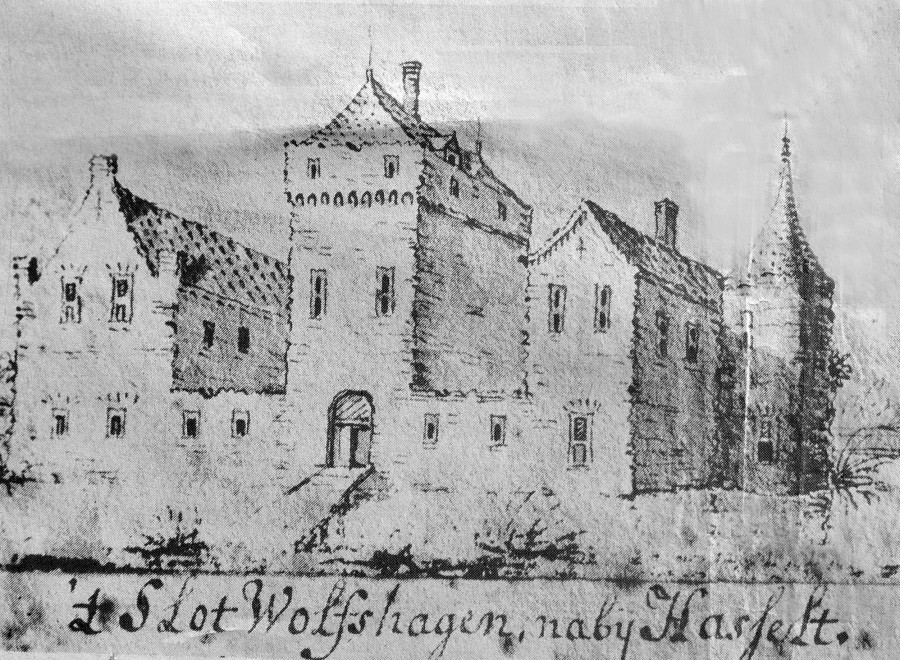 't Slot Wolfshagen, naby Hasselt.